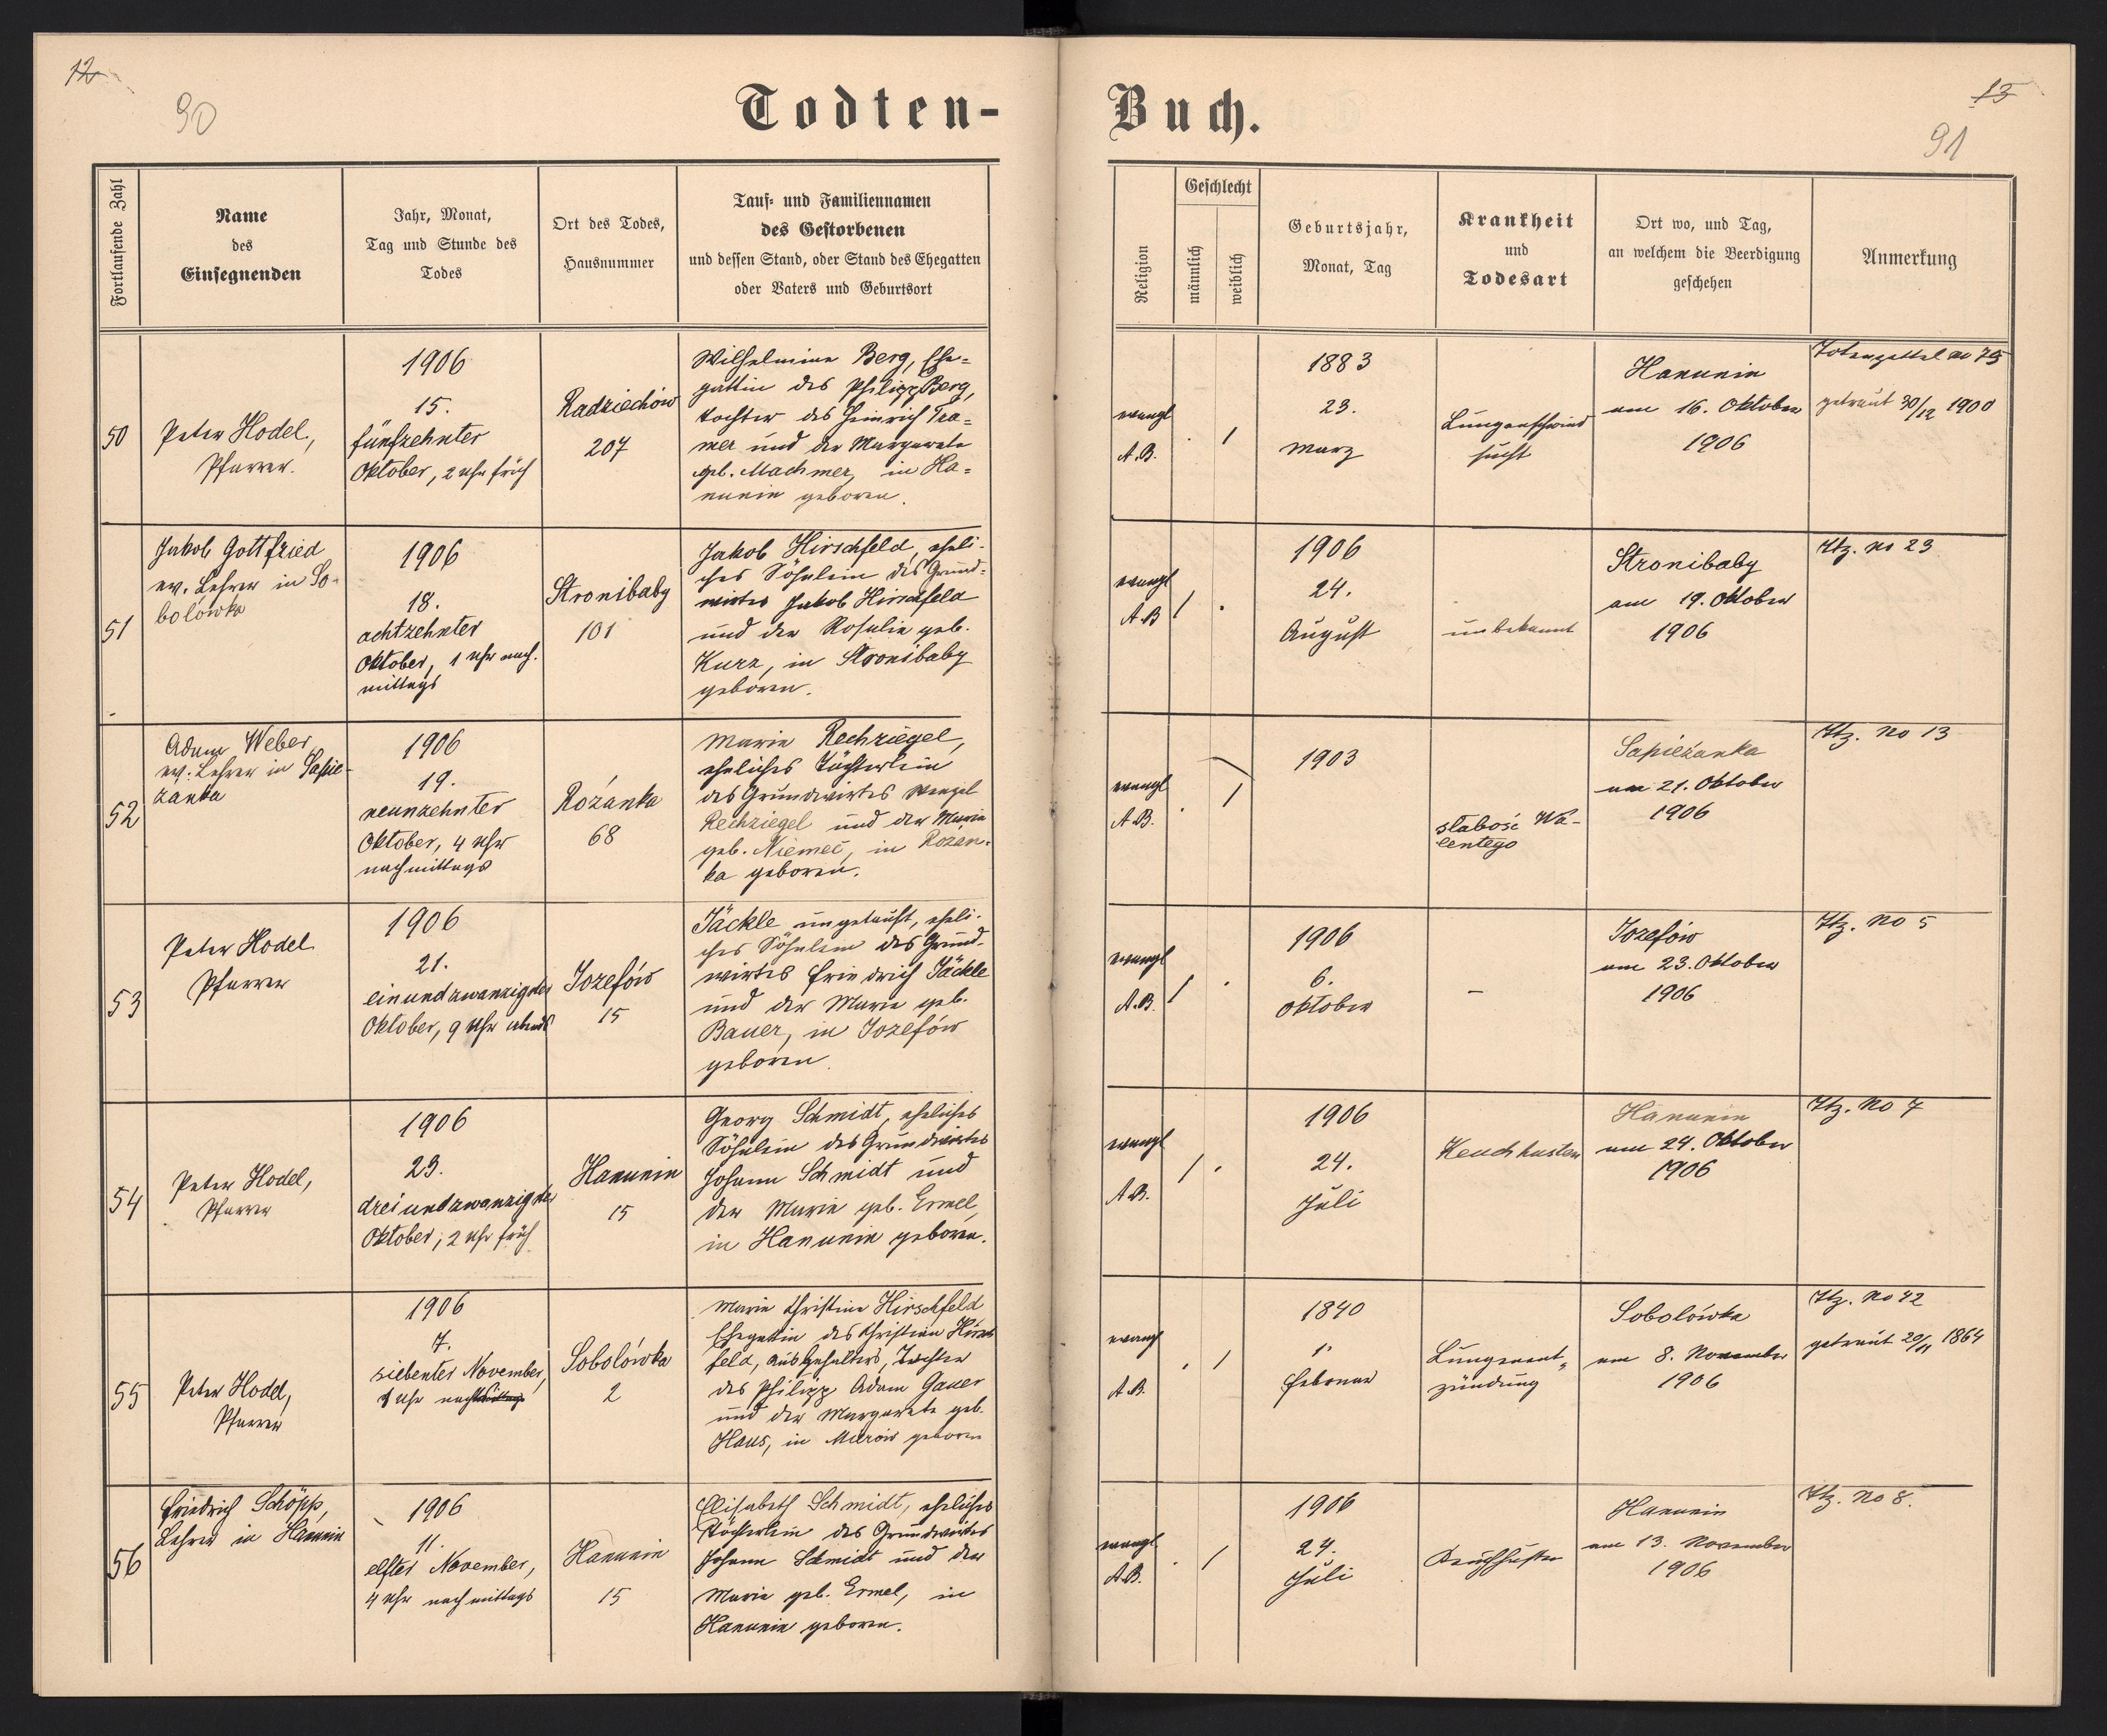 12
90
Todten-
Fortlaufende Zahl
Name
des
Einsegnenden
Jahr, Monat,
Tag und Stunde des
Todes
Ort des Todes,
Hausnummer
Tauf- und Familiennamen
des Gestorbenen
und dessen Stand, oder Stand des Ehegatten
oder Vaters und Geburtsort
50
Peter Hodel,
Pfarrer.
1906
15.
fünfzehnter
Oktober, 2 Uhr früh
Radziechów
207
Wilhelmine Berg, Ehe=
gattin des Philipp Berg,
Tochter des Heinrich Kra=
mer und der Margarete
geb. Machmer, in Ha=
nunin geboren.
51
Jakob Gottfried
ev. Lehrer in So-
bolówka
1906
18.
achtzehnter
Oktober, 1 Uhr nach-
mittags
Stronibaby
101
Jakob Hirschfeld, eheli-
ches Söhnlein des Grund-
wirtes Jakob Hirschfeld
und der Rosalie geb.
Kurz, in Stronibaby
geboren.
52
Adam Weber,
ev. Lehrer in Sapie-
zanka
1906
19.
neunzehnter
Oktober, 4 Uhr
nachmittags
Rożanka
68
Marie Rechziegel,
eheliches Töchterlein
des Grundwirtes Wenzel
Rechziegel und der Marie
geb. Niemeč, in Rożan-
ka geboren.
53
Peter Hodel
Pfarrer
1906
21.
einundzwanzigster
Oktober, 9 Uhr abends
Jozefów
15
Jäckle ungetauft, eheli-
ches Söhnlein des Grund-
wirtes Friedrich Jäckle
und der Marie geb.
Bauer, in Jozefów
geboren.
54
Peter Hodel,
Pfarrer
1906
23.
dreiundzwanzigster
Oktober, 2 Uhr früh
Hanunin
15
Georg Schmidt, eheliches
Söhnlein des Grundwirtes
Johann Schmidt und
der Marie geb. Ermel,
in Hanunin geboren.
55
Peter Hodel,
Pfarrer
1906
7.
siebenter November,
1 Uhr nachmittags
Sobolówka
2
Marie Christine Hirschfeld
Ehegattin des Christian Hirsch
feld, Ausgehalters, Tochter
des Philipp Adam Gauer
und der Margarete geb.
Haus, in Mierów geboren
56
Friedrich Schöpp,
Lehrer in Hanunin
1906
11.
elfter November,
4 Uhr nachmittags
Hanunin
15
Elisabeth Schmidt, eheliches
Töchterlein des Grundwirtes
Johann Schmidt und der
Marie geb. Ermel, in
Hanunin geboren.
Buch.
13
91
Religion
Geschlecht
männlich
weiblich
Geburtsjahr,
Monat, Tag
Krankheit
und
Todesart
Ort wo, und Tag,
an welchem die Beerdigung
geschehen
Anmerkung
evangl
A.B.
. 1
1883
23.
März
Lungenschwind
sucht
Hanunin
am 16. Oktober
1906
Totenzettel no 75
getraut 30/12 1900
evangl
A.B
1 .
1906
24.
August
unbekannt
Stronibaby
am 19. Oktober
1906
Ttz. no 23
evangl
A.B.
. 1
1903
słabość Wa-
lentego
Sapieżanka
am 21. Oktober
1906
Ttz. No 13
evangl
A.B.
1 .
1906
6.
Oktober
–
Jozefów
am 23. Oktober
1906
Ttz. No 5
evangl
A.B.
1 .
1906
24.
Juli
Keuchhusten
Hanunin
am 24. Oktober
1906
Ttz. No 7
evang
A.B.
. 1
1840
1.
Februar
Lungenent-
zündung
Sobolówka
am 8. November
1906
Ttz. No 42
getraut 20/11 1864
evangl
A.B.
. 1
1906
24.
Juli
Keuchhusten
Hanunin
am 13. November
1906
Ttz. No 8.